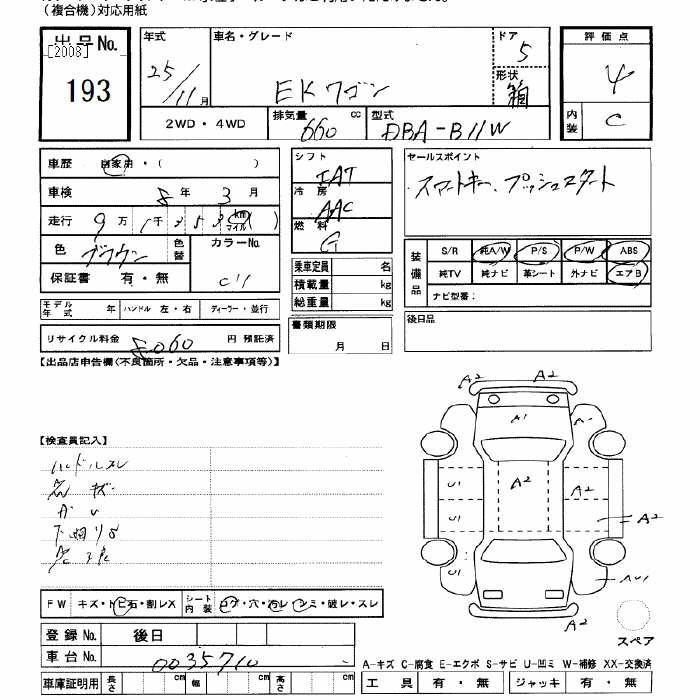 （複合機）対応用紙
出品No.
[2008]
193
年式
25/11月
車名・グレード
EKワゴン
ドア
5
形状
箱
2WD・4WD
排気量 660 cc
型式 DBA-B11W
評価点
4
内装 C
車歴 自家用・( )
車検 8年 3月
走行 9万 1千 km マイル ( )
色 ブラウン
色替
カラーNo.
C11
保証書 有・無
モデル年式 年 ハンドル 左・右 ディーラー・並行
リサイクル料金 8060 円 預託済
シフト
IAT
冷房
AAC
燃料
G
乗車定員 名
積載量 kg
総重量 kg
書類期限
月 日
セールスポイント
スマートキー、プッシュスタート
装備品
S/R 純A/W P/S P/W ABS
純TV 純ナビ 革シート 外ナビ エアB
ナビ型番：
後日品
【出品店申告欄（不良箇所・欠品・注意事項等）】
【検査員記入】
ハンドルスレ
キズ
下廻りS
A2 A2
A1
U1 A2 A2
U1 A2
U1
A2
スペア
FW キズ・トビ石・割レX
シート内装 コゲ・穴・汚レ・シミ・破レ・スレ
登録No. 後日
車台No. 0035710
車庫証明用 長さ cm 幅 cm 高さ cm
A-キズ C-腐食 E-エクボ S-サビ U-凹ミ W-補修 XX-交換済
工具 有・無 ジャッキ 有・無